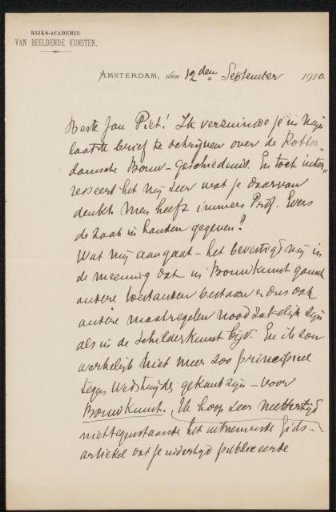 RIJKS-ACADEMIE
VAN BEELDENDE KUNSTEN.
AMSTERDAM, den 12den September 1910.
Beste Jan Piet! Ik verzuimde je in mijn
laatste brief te schrijven over de Rotter-
damsche Bouw-geschiedenis. En toch inter-
resseert het mij zeer wat je daarvan
denkt. Men heeft immers Prof. Evers
de zaak in handen gegeven?
Wat mij aangaat - het bevestigt mij in
de meening dat in Bouwkunst gansch
andere toestanden bestaan en dus ook
andere maatregelen noodzakelijk zijn
als in de Schilderkunst bijv. En ik zou
werkelijk niet meer zoo principieel
tegen wedstrijden gekant zijn - voor
Bouwkunst. Ik hoop zeer
niettegenstaande het uitnemende Gids-
artikel dat je indertijd publiceerde